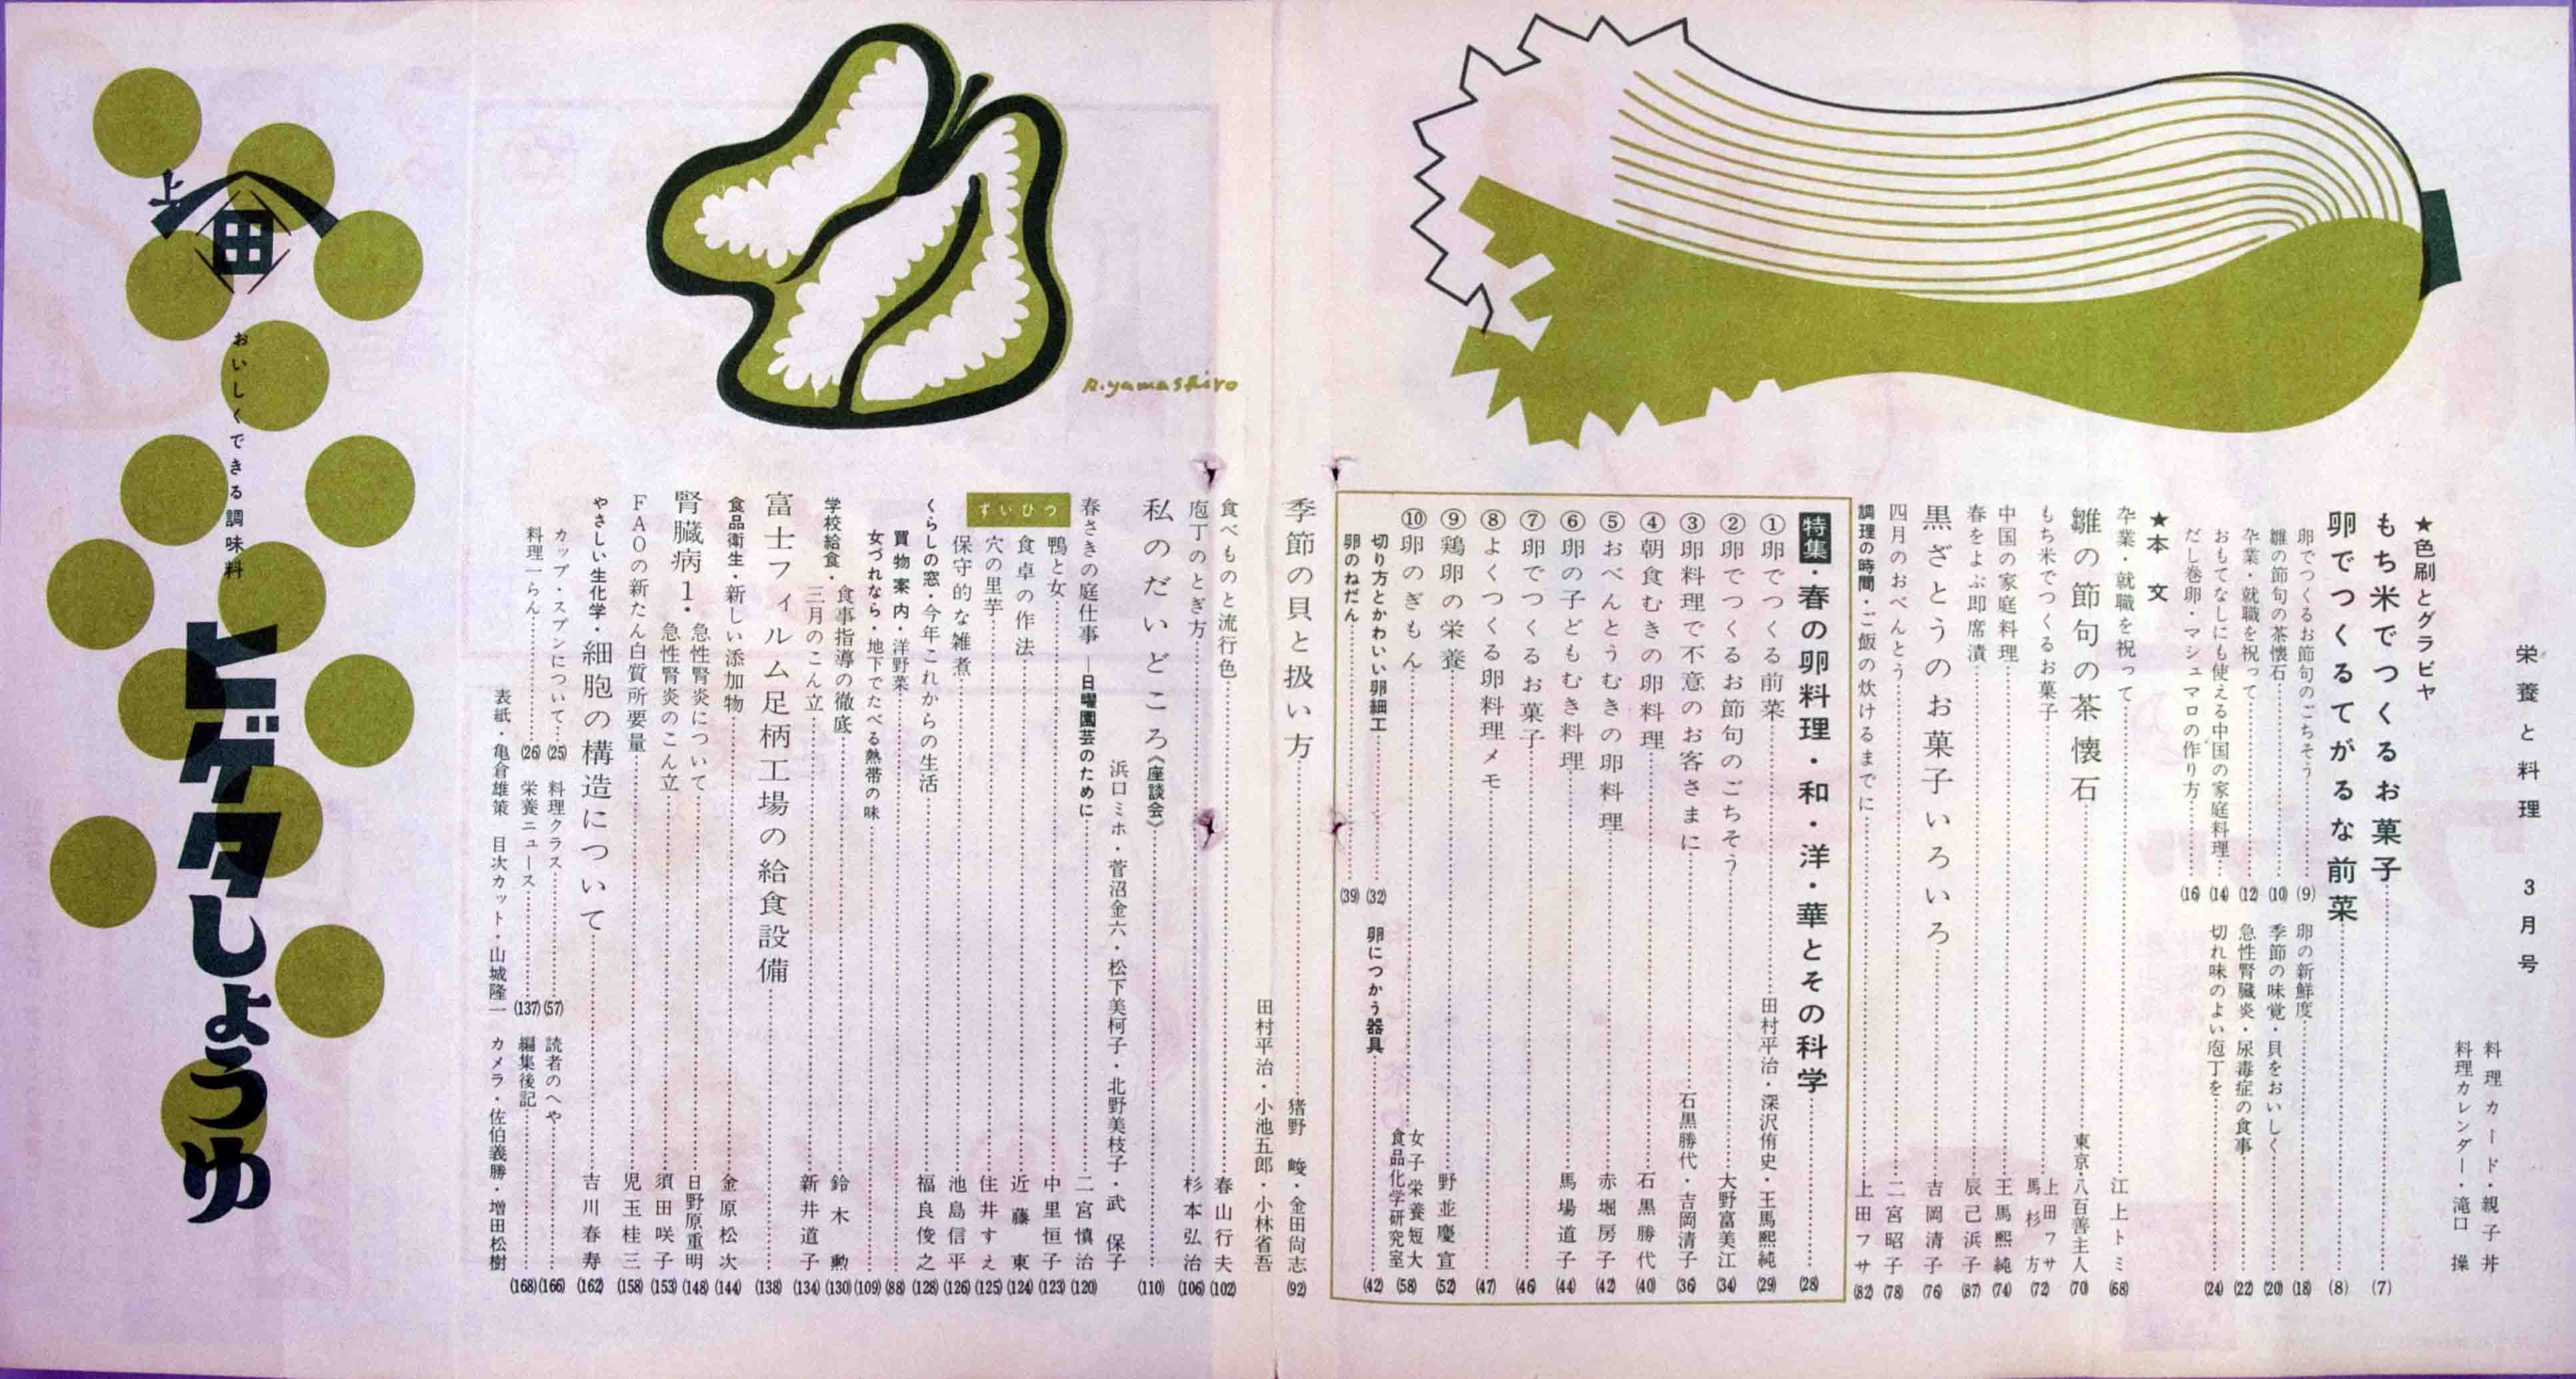 栄養と料理　3月号
料理カード・親子丼
料理カレンダー・滝口　操
★色刷とグラビヤ
もち米でつくるお菓子……(7)
卵でつくるてがるな前菜……(8)
卵でつくるお節句のごちそう……(9)
雛の節句の茶懐石……(10)
卒業・就職を祝って……(12)
おもてなしにも使える中国の家庭料理……(14)
だし巻卵・マシュマロの作り方……(16)
卵の新鮮度……(18)
季節の味覚・貝をおいしく……(20)
急性腎臓炎・尿毒症の食事……(22)
切れ味のよい庖丁を……(24)
★本　文
卒業・就職を祝って……江上トミ(68)
雛の節句の茶懐石……東京・八百善主人(70)
もち米でつくるお菓子……上田フサ　馬杉　方(72)
中国の家庭料理……王馬熙純(74)
春をよぶ即席漬……辰己浜子(87)
黒ざとうのお菓子いろいろ……吉岡清子(76)
四月のおべんとう……二宮昭子(78)
調理の時間・ご飯の炊けるまでに……上田フサ(82)
特集・春の卵料理・和・洋・華とその科学……(28)
①卵でつくる前菜……田村平治・深沢侑史・王馬熙純(29)
②卵でつくるお節句のごちそう……大野富美江(34)
③卵料理で不意のお客さまに……石黒勝代・吉岡清子(36)
④朝食むきの卵料理……石黒勝代(40)
⑤おべんとうむきの卵料理……赤堀房子(42)
⑥卵の子どもむき料理……馬場道子(44)
⑦卵でつくるお菓子……(46)
⑧よくつくる卵料理メモ……(47)
⑨鶏卵の栄養……野並慶宣(52)
⑩卵のぎもん……女子栄養短大食品化学研究室(58)
切り方とかわいい卵細工……(32)
卵につかう器具……(42)
卵のねだん……(39)
季節の貝と扱い方……猪野　峻・金田尚志(92)
田村平治・小池五郎・小林省吾
食べものと流行色……春山行夫(102)
庖丁のとぎ方……杉本弘治(106)
私のだいどころ《座談会》……(110)
浜口ミホ・菅沼金六・松下美柯子・北野美枝子・武　保子
春さきの庭仕事―日曜園芸のために……二宮慎治(120)
ずいひつ
鴨と女……中里恒子(123)
食卓の作法……近藤　東(124)
穴の里芋……住井すえ(125)
保守的な雑煮……池島信平(126)
くらしの窓・今年これからの生活……福良俊之(128)
買物案内・洋野菜……(88)
女づれなら・地下でたべる熱帯の味……(109)
学校給食・食事指導の徹底……鈴木　勲(130)
三月のこん立……新井道子(134)
富士フィルム足柄工場の給食設備……(138)
食品衛生・新しい添加物……金原松次(144)
腎臓病1・急性腎炎について……日野原重明(148)
急性腎炎のこん立……須田咲子(153)
FAOの新たん白質所要量……児玉桂三(158)
やさしい生化学・細胞の構造について……吉川春寿(162)
カップ・スプンについて……(25)
料理クラス……(57)
読者のへや……(166)
料理一らん……(26)
栄養ニュース……(137)
編集後記……(168)
表紙・亀倉雄策　目次カット・山城隆一　カメラ・佐伯義勝・増田松樹
R.yamashiro
上
田
おいしくできる調味料
ヒゲタしょうゆ